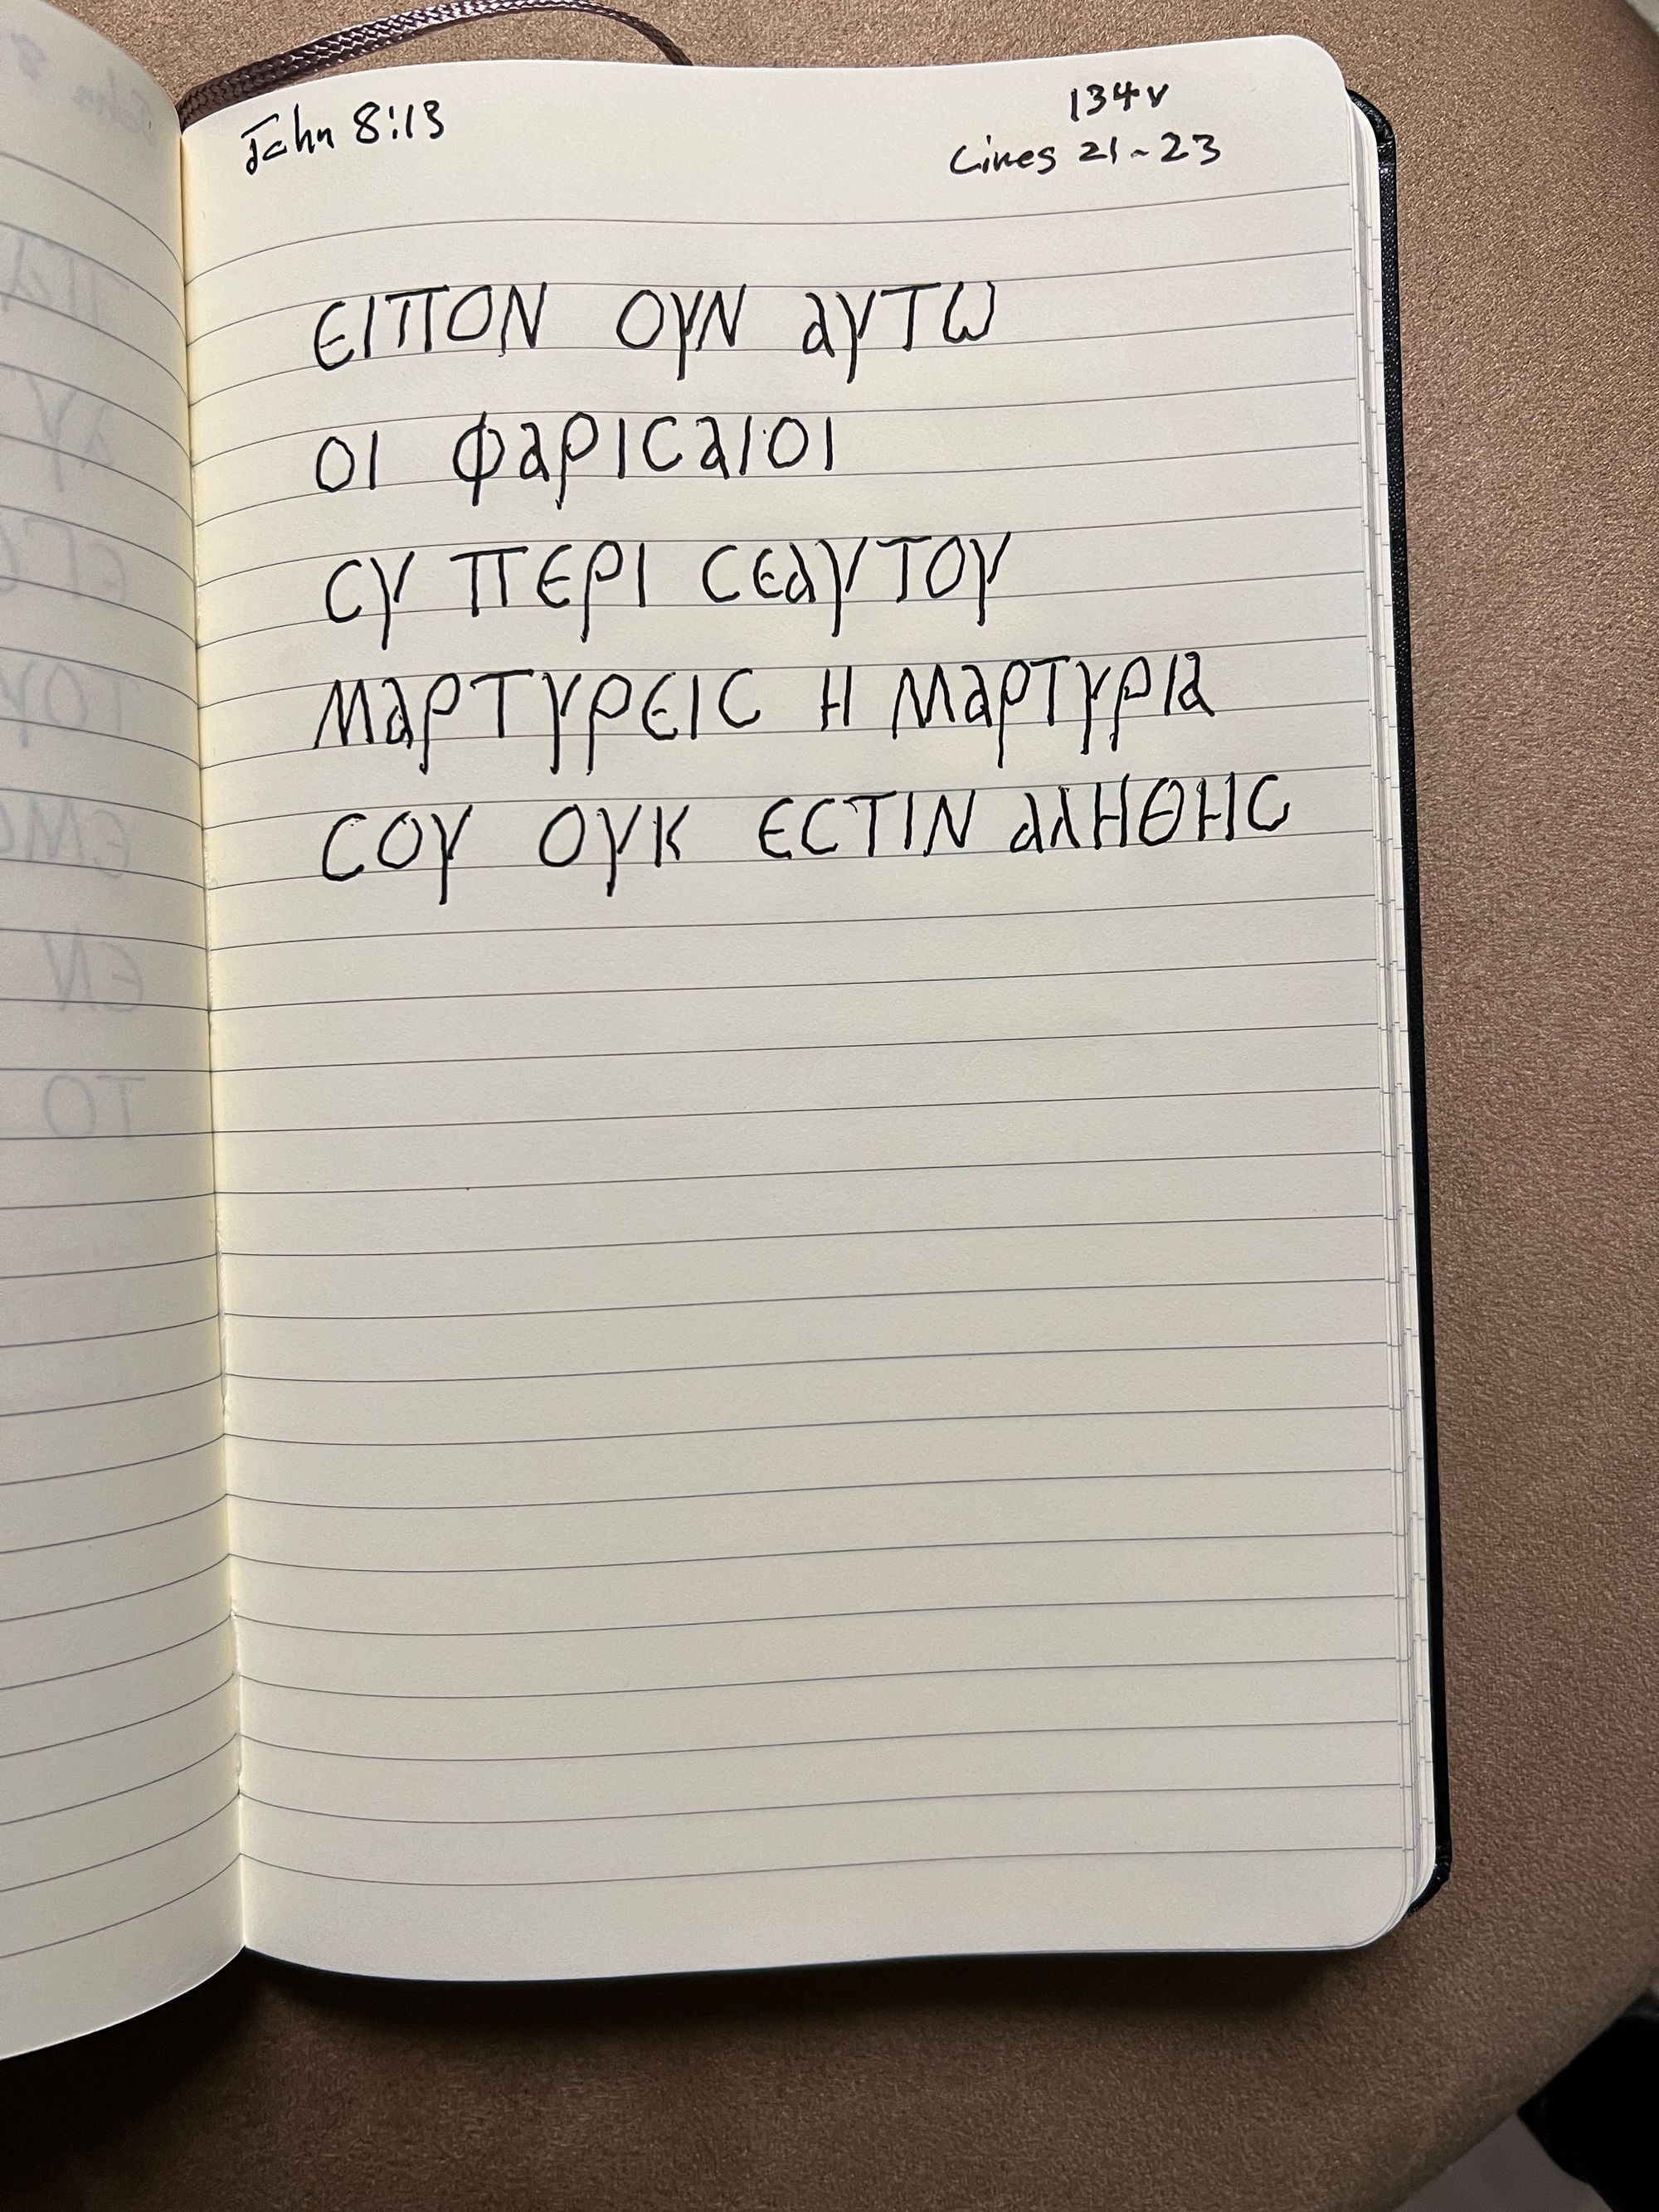 John 8:13
134v
Lines 21-23
ΕΙΠΟΝ ΟΥΝ ΑΥΤΩ
ΟΙ ΦΑΡΙϹΑΙΟΙ
ϹΥ ΠΕΡΙ ϹΕΑΥΤΟΥ
ΜΑΡΤΥΡΕΙϹ Η ΜΑΡΤΥΡΙΑ
ϹΟΥ ΟΥΚ ΕϹΤΙΝ ΑΛΗΘΗϹ